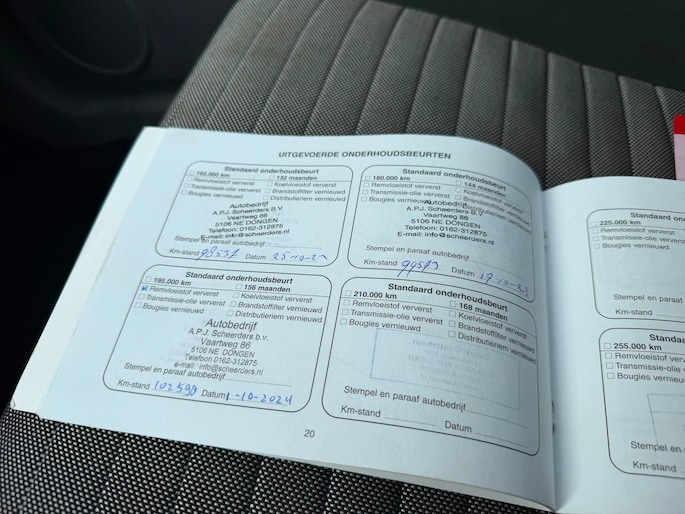 UITGEVOERDE ONDERHOUDSBEURTEN
Standaard onderhoudsbeurt
165.000 km 132 maanden
Remvloeistof ververst Koelvloeistof ververst
Transmissie-olie ververst Brandstoffilter vernieuwd
Bougies vernieuwd Distributieriem vernieuwd
Autobedrijf
A.P.J. Scheerders B.V.
Vaartweg 86
5106 NE DONGEN
Telefoon: 0162-312875
E-mail: info@scheerders.nl
Stempel en paraaf autobedrijf
Km-stand Datum
Standaard onderhoudsbeurt
180.000 km 144 maanden
Remvloeistof ververst Koelvloeistof ververst
Transmissie-olie ververst Brandstoffilter vernieuwd
Bougies vernieuwd
Autobedrijf
A.P.J. Scheerders B.V.
Vaartweg 86
5106 NE DONGEN
Telefoon: 0162-312875
E-mail: info@scheerders.nl
Stempel en paraaf autobedrijf
Km-stand Datum
Standaard onderhoudsbeurt
195.000 km 156 maanden
Remvloeistof ververst Koelvloeistof ververst
Transmissie-olie ververst Brandstoffilter vernieuwd
Bougies vernieuwd Distributieriem vernieuwd
Autobedrijf
A.P.J. Scheerders b.v.
Vaartweg 86
5106 NE DONGEN
Telefoon 0162-312875
e-mail: info@scheerders.nl
Stempel en paraaf autobedrijf
Km-stand 102599 Datum 1-10-2024
Standaard onderhoudsbeurt
210.000 km 168 maanden
Remvloeistof ververst Koelvloeistof ververst
Transmissie-olie ververst Brandstoffilter vernieuwd
Bougies vernieuwd Distributieriem vernieuwd
Stempel en paraaf autobedrijf
Km-stand Datum
20
Standaard
225.000 km
Remvloeistof ververst
Transmissie-olie ververst
Bougies vernieuwd
Stempel en paraaf
Km-stand
Standaard
255.000 km
Remvloeistof ververst
Transmissie-olie
Bougies
Stempel en
Km-stand